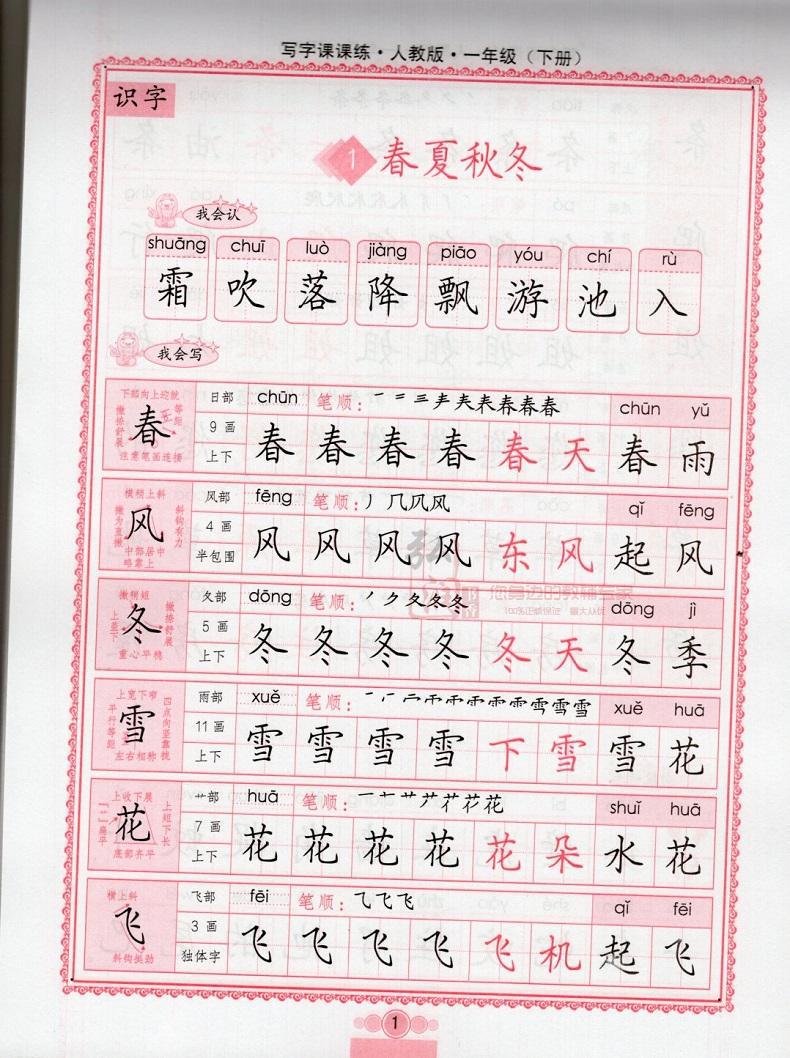 写字课课练·人教版·一年级（下册）
识字
1 春夏秋冬
我会认
shuāng chuī luò jiàng piāo yóu chí rù
霜 吹 落 降 飘 游 池 入
我会写
下部向上迎就 撇捺舒展 等距 注意笔画连接
春
日部 chūn 笔顺： chūn yǔ
9 画
上下
春 春 春 春 春 天 春 雨
横稍上斜 撇为直撇 斜钩有力 中部居中 略靠上
风
风部 fēng 笔顺： qǐ fēng
4 画
半包围
风 风 风 风 东 风 起 风
撇稍短 上盖下 撇捺舒展 重心平稳
冬
夂部 dōng 笔顺： dōng jì
5 画
上下
冬 冬 冬 冬 冬 天 冬 季
上宽下窄 平行等距 四点向竖靠拢 左右相称
雪
雨部 xuě 笔顺： xuě huā
11 画
上下
雪 雪 雪 雪 下 雪 雪 花
上收下展 「一」扁平 上短下长 底部齐平
花
艹部 huā 笔顺： shuǐ huā
7 画
上下
花 花 花 花 花 朵 水 花
横上斜 斜钩挺劲
飞
飞部 fēi 笔顺： qǐ fēi
3 画
独体字
飞 飞 飞 飞 飞 机 起 飞
您身边的教辅专家
1